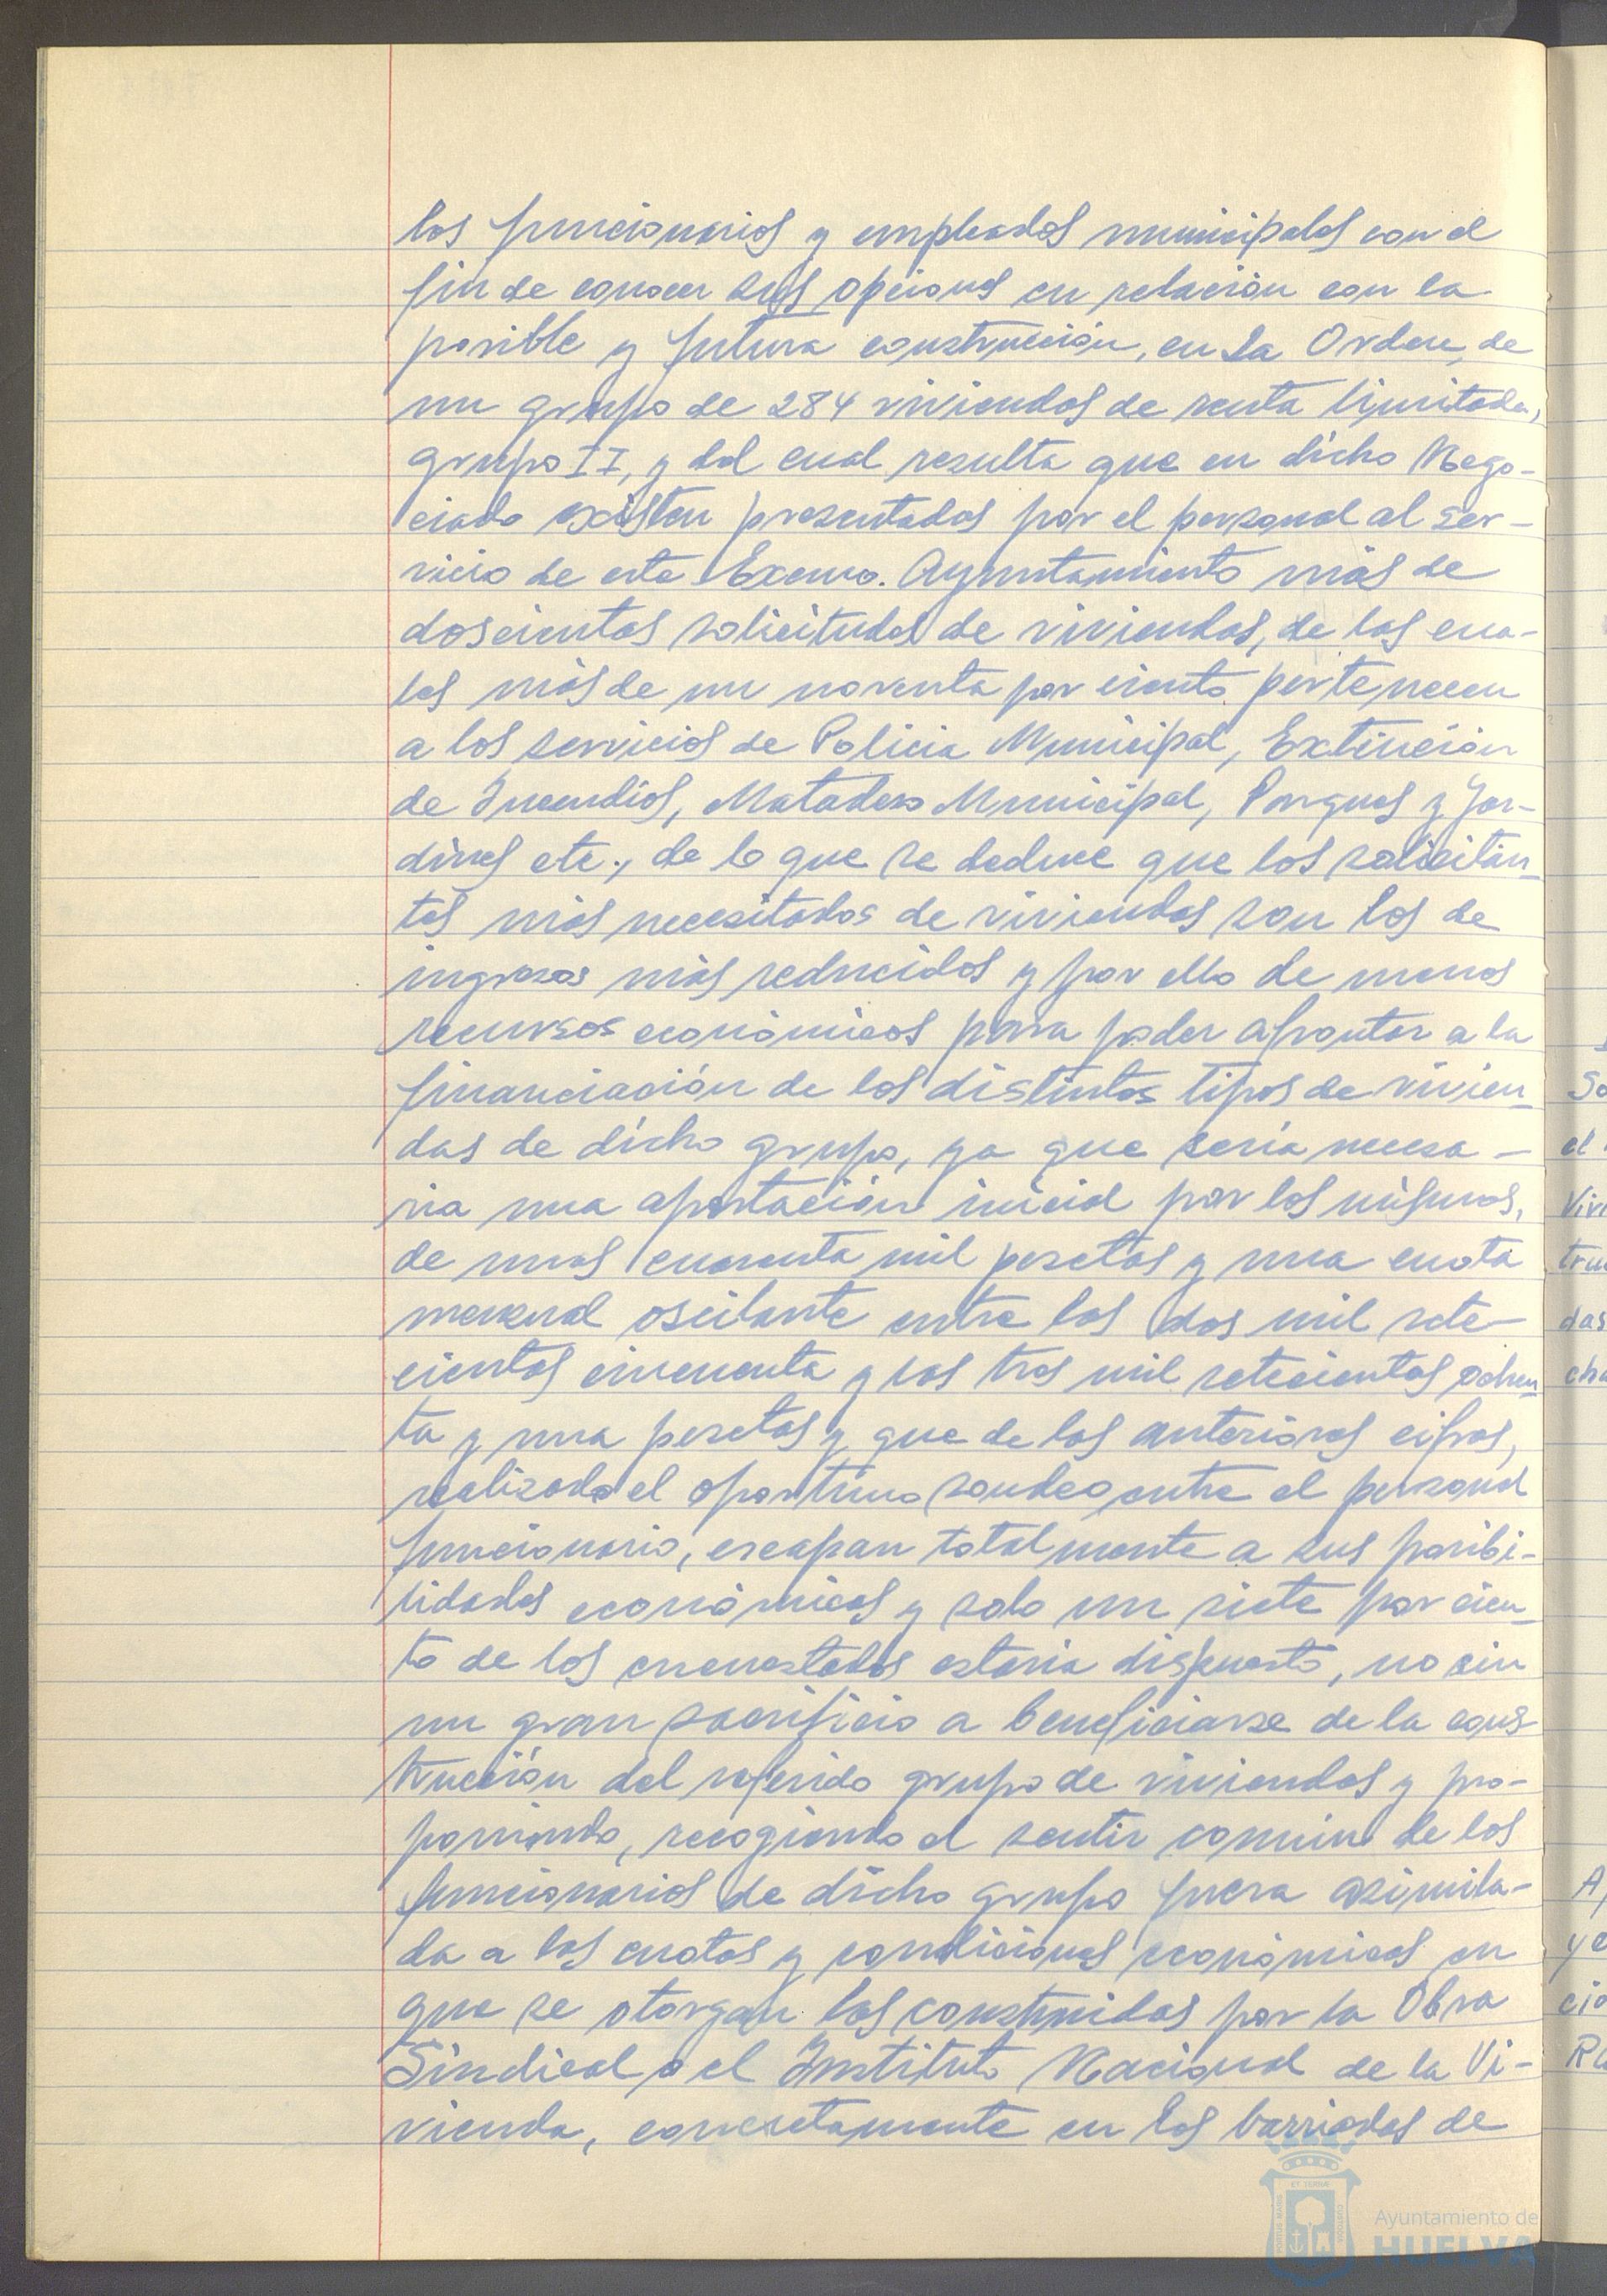 los funcionarios y empleados municipales con el
fin de conocer sus opciones en relación con la
posible y futura construcción, en la Orden, de
un grupo de 284 viviendas de renta limitada,
grupo II, y del cual resulta que en dicho Nego-
ciado existen presentadas por el personal al ser-
vicio de este Excmo. Ayuntamiento más de
doscientas solicitudes de viviendas, de las cua-
les más de un noventa por ciento pertenecen
a los servicios de Policia Municipal, Extinción
de Incendios, Matadero Municipal, Parques y Jar-
dines etc., de lo que se deduce que los solicitan-
tes más necesitados de viviendas son los de
ingresos más reducidos y por ello de menos
recursos económicos para poder afrontar a la
financiación de los distintos tipos de vivien-
das de dicho grupo, ya que sería necesa-
ria una aportación inicial por los mismos,
de unas cuarenta mil pesetas y una cuota
mensual oscilante entre las dos mil sete-
cientas cincuenta y las tres mil setecientas ochen-
ta y una pesetas y que de las anteriores cifras,
realizado el oportuno sondeo entre el personal
funcionario, escapan totalmente a sus posibi-
lidades económicas y solo un siete por cien-
to de los encuestados estaria dispuesto, no sin
un gran sacrificio a beneficiarse de la cons-
trucción del referido grupo de viviendas y pro-
poniendo, recogiendo el sentir común de los
funcionarios de dicho grupo fuera asimila-
da a las cuotas y condiciones económicas en
que se otorgan las construidas por la Obra
Sindical o el Instituto Nacional de la Vi-
vienda, concretamente en las barriadas de
Ayuntamiento de
HUELVA